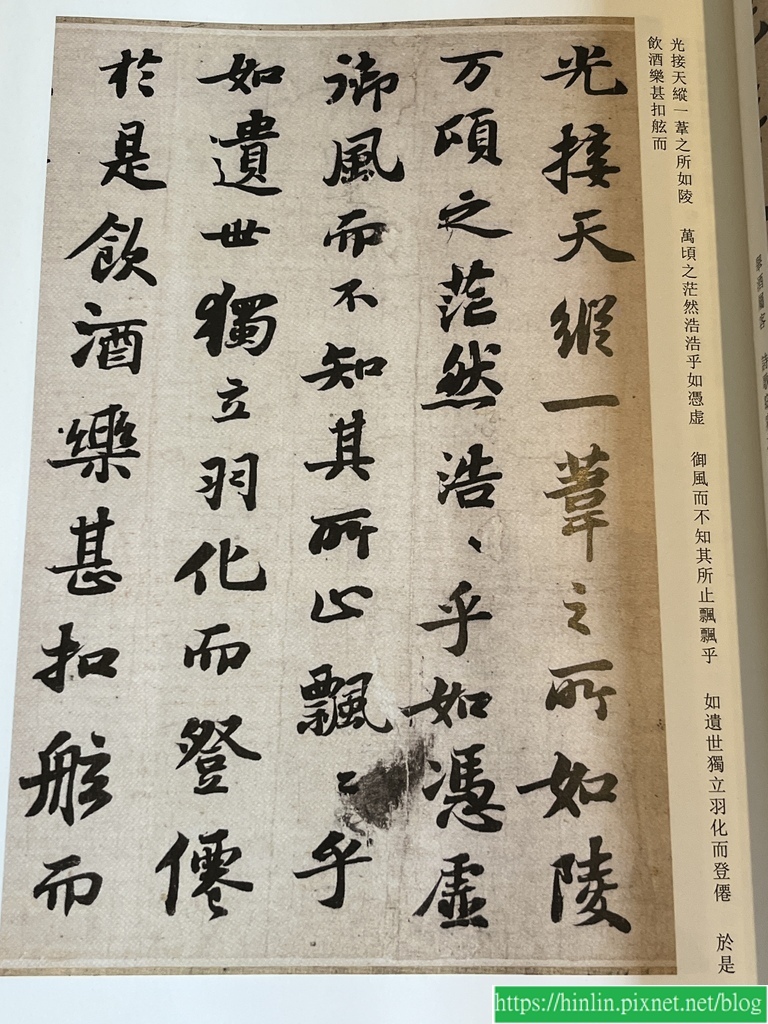 光接天縱一葦之所如陵
万頃之茫然浩〻乎如憑虛
御風而不知其所止飄〻乎
如遺世獨立羽化而登僊
於是飲酒樂甚扣舷而
光接天縱一葦之所如陵　萬頃之茫然浩浩乎如憑虛　御風而不知其所止飄飄乎　如遺世獨立羽化而登僊　於是
飲酒樂甚扣舷而
https://hinlin.pixnet.net/blog